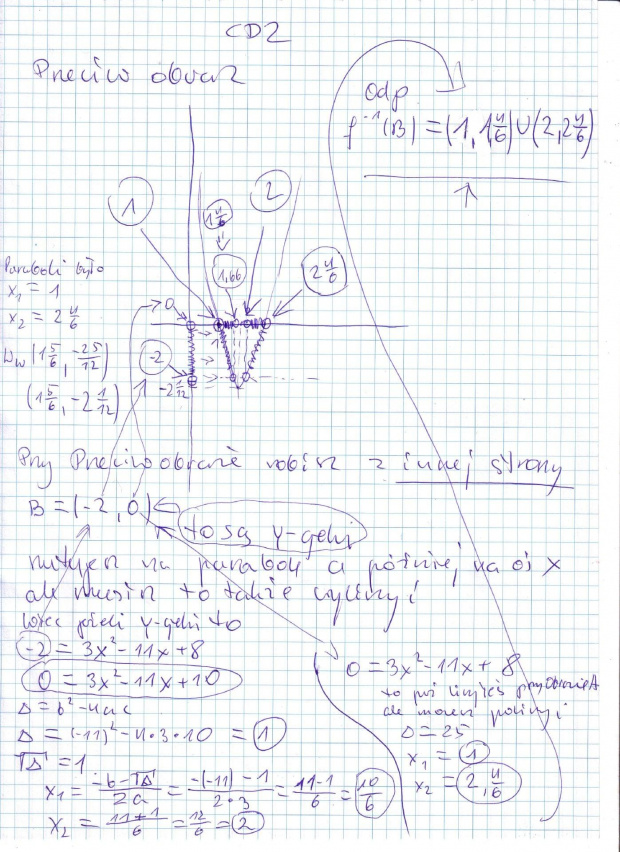 CD2
Przeciw obraz
Odp
f⁻¹(B) = (1, 1 4/6) ∪ (2, 2 4/6)
1
1 4/6
2
1,66
2 4/6
0
-2
1
-2 1/12
Paraboli było
x₁ = 1
x₂ = 2 4/6
Ww (1 5/6, -25/12)
(1 5/6, -2 1/12)
Przy Przeciwobrazie robisz z innej strony
B = (-2, 0) ← to są y-greki
rzutujesz na parabolę a później na oś x
ale musisz to także wyliczyć
wiec jeżeli y-greki to
-2 = 3x² - 11x + 8
0 = 3x² - 11x + 10
Δ = b² - 4ac
Δ = (-11)² - 4·3·10 = 1
√Δ = 1
x₁ = (-b - √Δ)/2a = (-(-11) - 1)/(2·3) = (11-1)/6 = 10/6
x₂ = (11+1)/6 = 12/6 = 2
0 = 3x² - 11x + 8
to już liczyłeś przy obrazie A
ale możesz policzyć
Δ = 25
x₁ = 1
x₂ = 2, 4/6